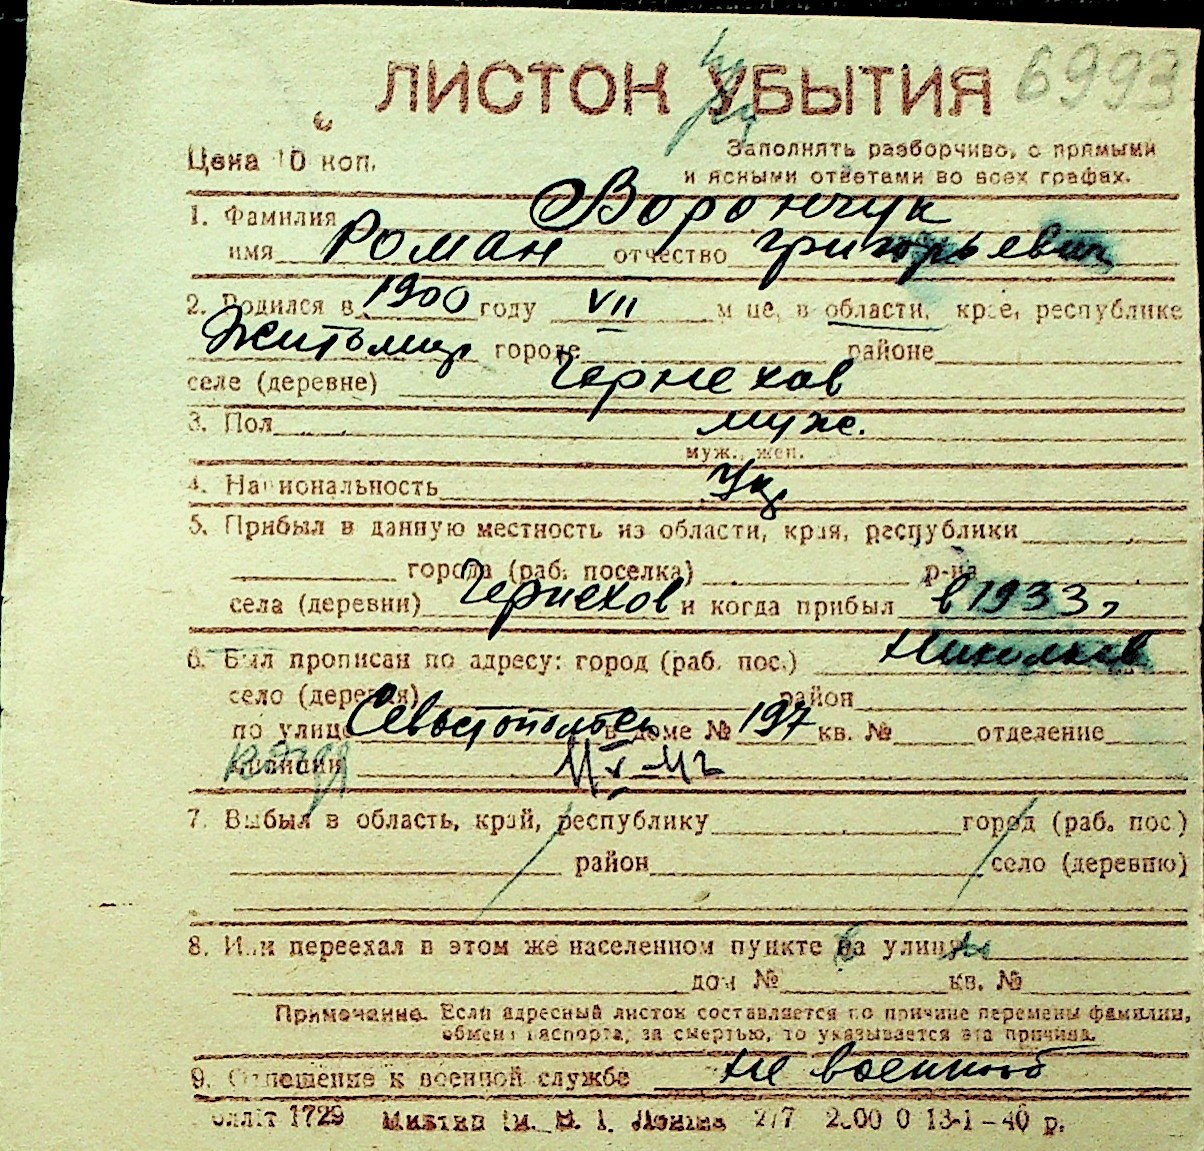 6993
ЛИСТОК УБЫТИЯ
Цена 10 коп.
Заполнять разборчиво, с прямыми
и ясными ответами во всех графах.
1. Фамилия Ворончук
имя Роман отчество Григорьевич
2. Родился в 1900 году VII м це, в области, крае, республике
Житомир городе районе
селе (деревне) Чернехов
3. Пол муж.
муж., жен.
4. Национальность Укр
5. Прибыл в данную местность из области, края, республики
города (раб. поселка) р-на
села (деревни) Чернехов и когда прибыл в 1933 г
6. Был прописан по адресу: город (раб. пос.) Николаев
село (деревня) район
по улице Севастопольск в доме № 197 кв. № отделение
милиции
7. Выбыл в область, край, республику город (раб. пос.)
район село (деревню)
8. Или переехал в этом же населенном пункте на улицу
дом № кв. №
Примечание. Если адресный листок составляется по причине перемены фамилии,
обмена паспорта, за смертью, то указывается эта причина.
9. Отношение к военной службе не военнооб
1729 2/7 13-1-40 р.